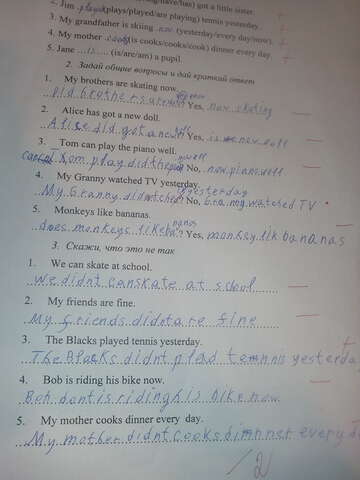 ng/have/has) got a little sister.
2. Jim played(plays/played/are playing) tennis yesterday.
3. My grandfather is skiing now (yesterday/every day/now).
4. My mother cooks(is cooks/cooks/cook) dinner every day.
5. Jane is (is/are/am) a pupil.
2. Задай общие вопросы и дай краткий ответ
1. My brothers are skating now.
Did brothers are now? Yes, now skating
2. Alice has got a new doll.
Alice did got a new doll? Yes, is new doll
3. Tom can play the piano well.
Tom play did the well? No, now piano well
4. My Granny watched TV yesterday.
My Granny did watches yesterday? No, Granny watched TV
5. Monkeys like bananas.
does monkeys like bananas? Yes, monksy lik bananas
3. Скажи, что это не так
1. We can skate at school.
We didnt canskate at school
2. My friends are fine.
My friends didnt are fine
3. The Blacks played tennis yesterday.
The Blacks didnt plad temnnis yesterda
4. Bob is riding his bike now.
Bob dont is riding his bike now
5. My mother cooks dinner every day.
My mother didnt cooks bimnner every d
/2